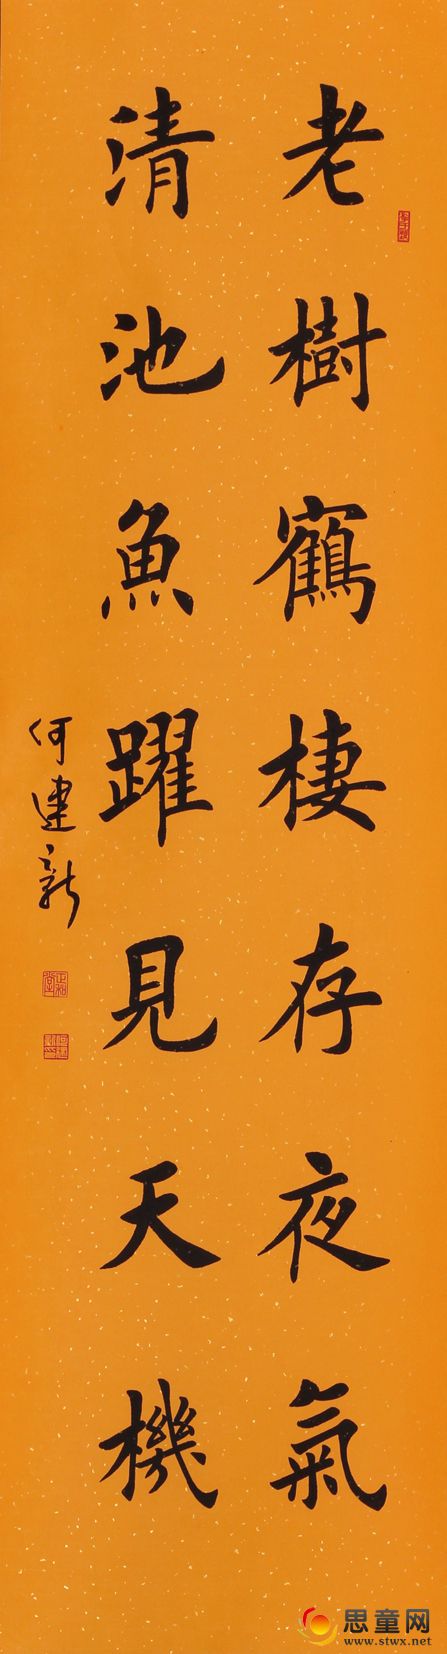 老樹鶴棲存夜氣
清池魚躍見天機
何建新
思童网
www.stwx.net